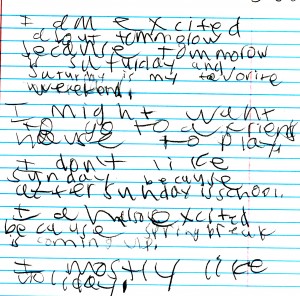 I am excited
about tommorow
because tommorow
is saturday and
Saturday is my favorite
weekend.
I might want
to go to a friens
house to play.
I don't like
sunday because
after sunday is school.
I am excited
because spring break
is coming up.
I mostly like
holiday.